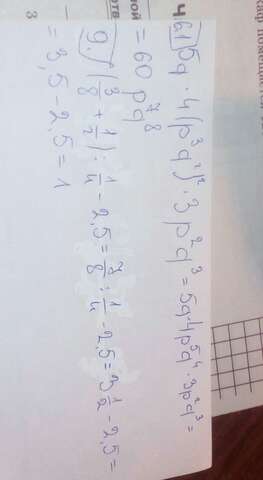 4
61) 5q · 4(p³q²)² · 3p²q³ = 5q·4p⁵q⁴ · 3p²q³ =
= 60 p⁷q⁸
9. (3/8 + 1/2) : 1/4 - 2,5 = 7/8 : 1/4 - 2,5 = 3 1/2 - 2,5 =
= 3,5 - 2,5 = 1
3